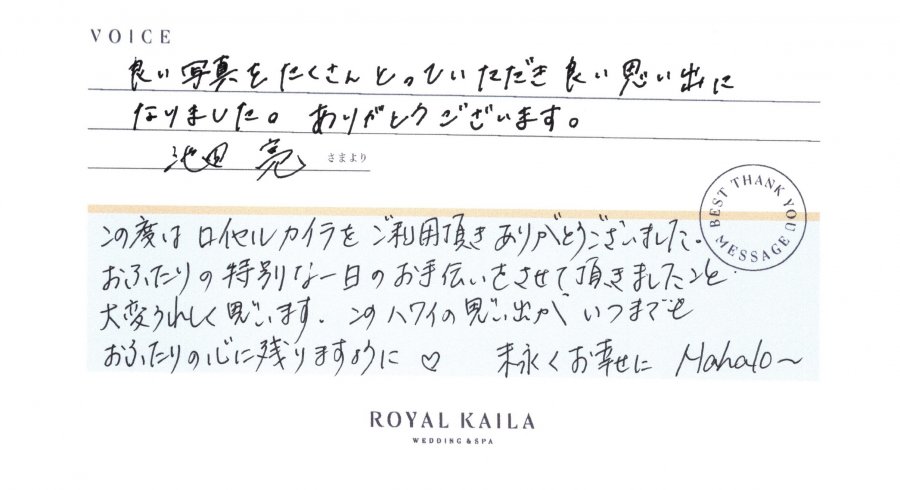 VOICE
良い写真をたくさんとっていただき良い思い出に
なりました。ありがとうございます。
池田 亮 さまより
BEST THANK YOU MESSAGE
この度はロイヤルカイラをご利用頂きありがとうございました.
おふたりの特別な一日のお手伝いをさせて頂きましたこと
大変うれしく思います. このハワイの思い出が いつまでも
おふたりの心に残りますように♡ 末永くお幸せに Mahalo〜
ROYAL KAILA
WEDDING & SPA